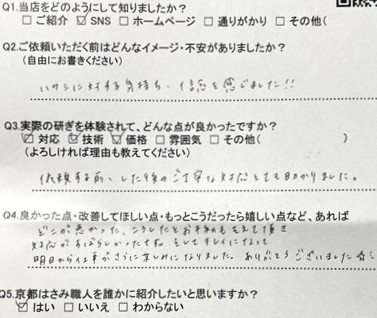 Q1.当店をどのようにして知りましたか？
□ご紹介 ☑SNS □ホームページ □通りがかり □その他(
Q2.ご依頼いただく前はどんなイメージ・不安がありましたか？
(自由にお書きください)
ハサミに対する気持ち、信念を感じました!!
Q3.実際の研ぎを体験されて、どんな点が良かったですか？
☑対応 ☑技術 ☑価格 □雰囲気 □その他( )
(よろしければ理由も教えてください)
依頼する前、した後のご丁寧な対応とても助かりました。
Q4.良かった点・改善してほしい点・もっとこうだったら嬉しい点など、あれば
どこが悪かった、こうしたとお手入れも教えて頂き
対応がすばらしかったです。そしてキレイになって
明日から仕事がさらに楽しみになりました。ありがとうございました☆ミ
Q5.京都はさみ職人を誰かに紹介したいと思いますか？
☑はい □いいえ □わからない